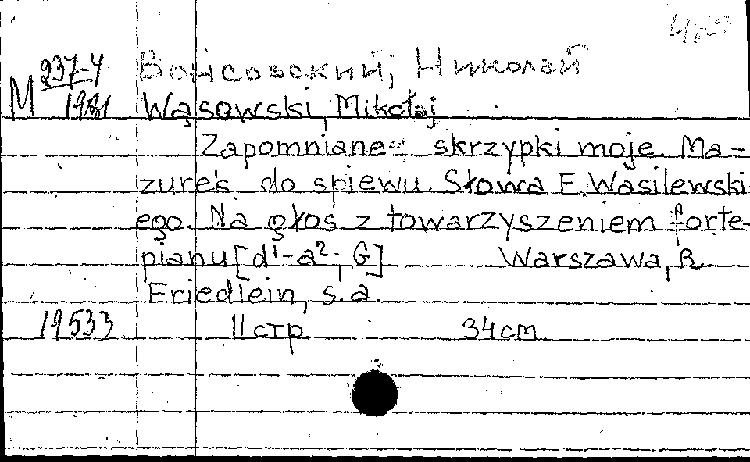 М 237-4
1981
Вонсовский, Николай
Wąsowski, Mikołaj
Zapomniane skrzypki moje. Ma-
zurek do śpiewu. Słowa E. Wasilewski-
ego. Na głos z towarzyszeniem forte-
pianu [d¹-a²; G] Warszawa, R.
Friedlein, s.a.
19533 11 стр 34cm